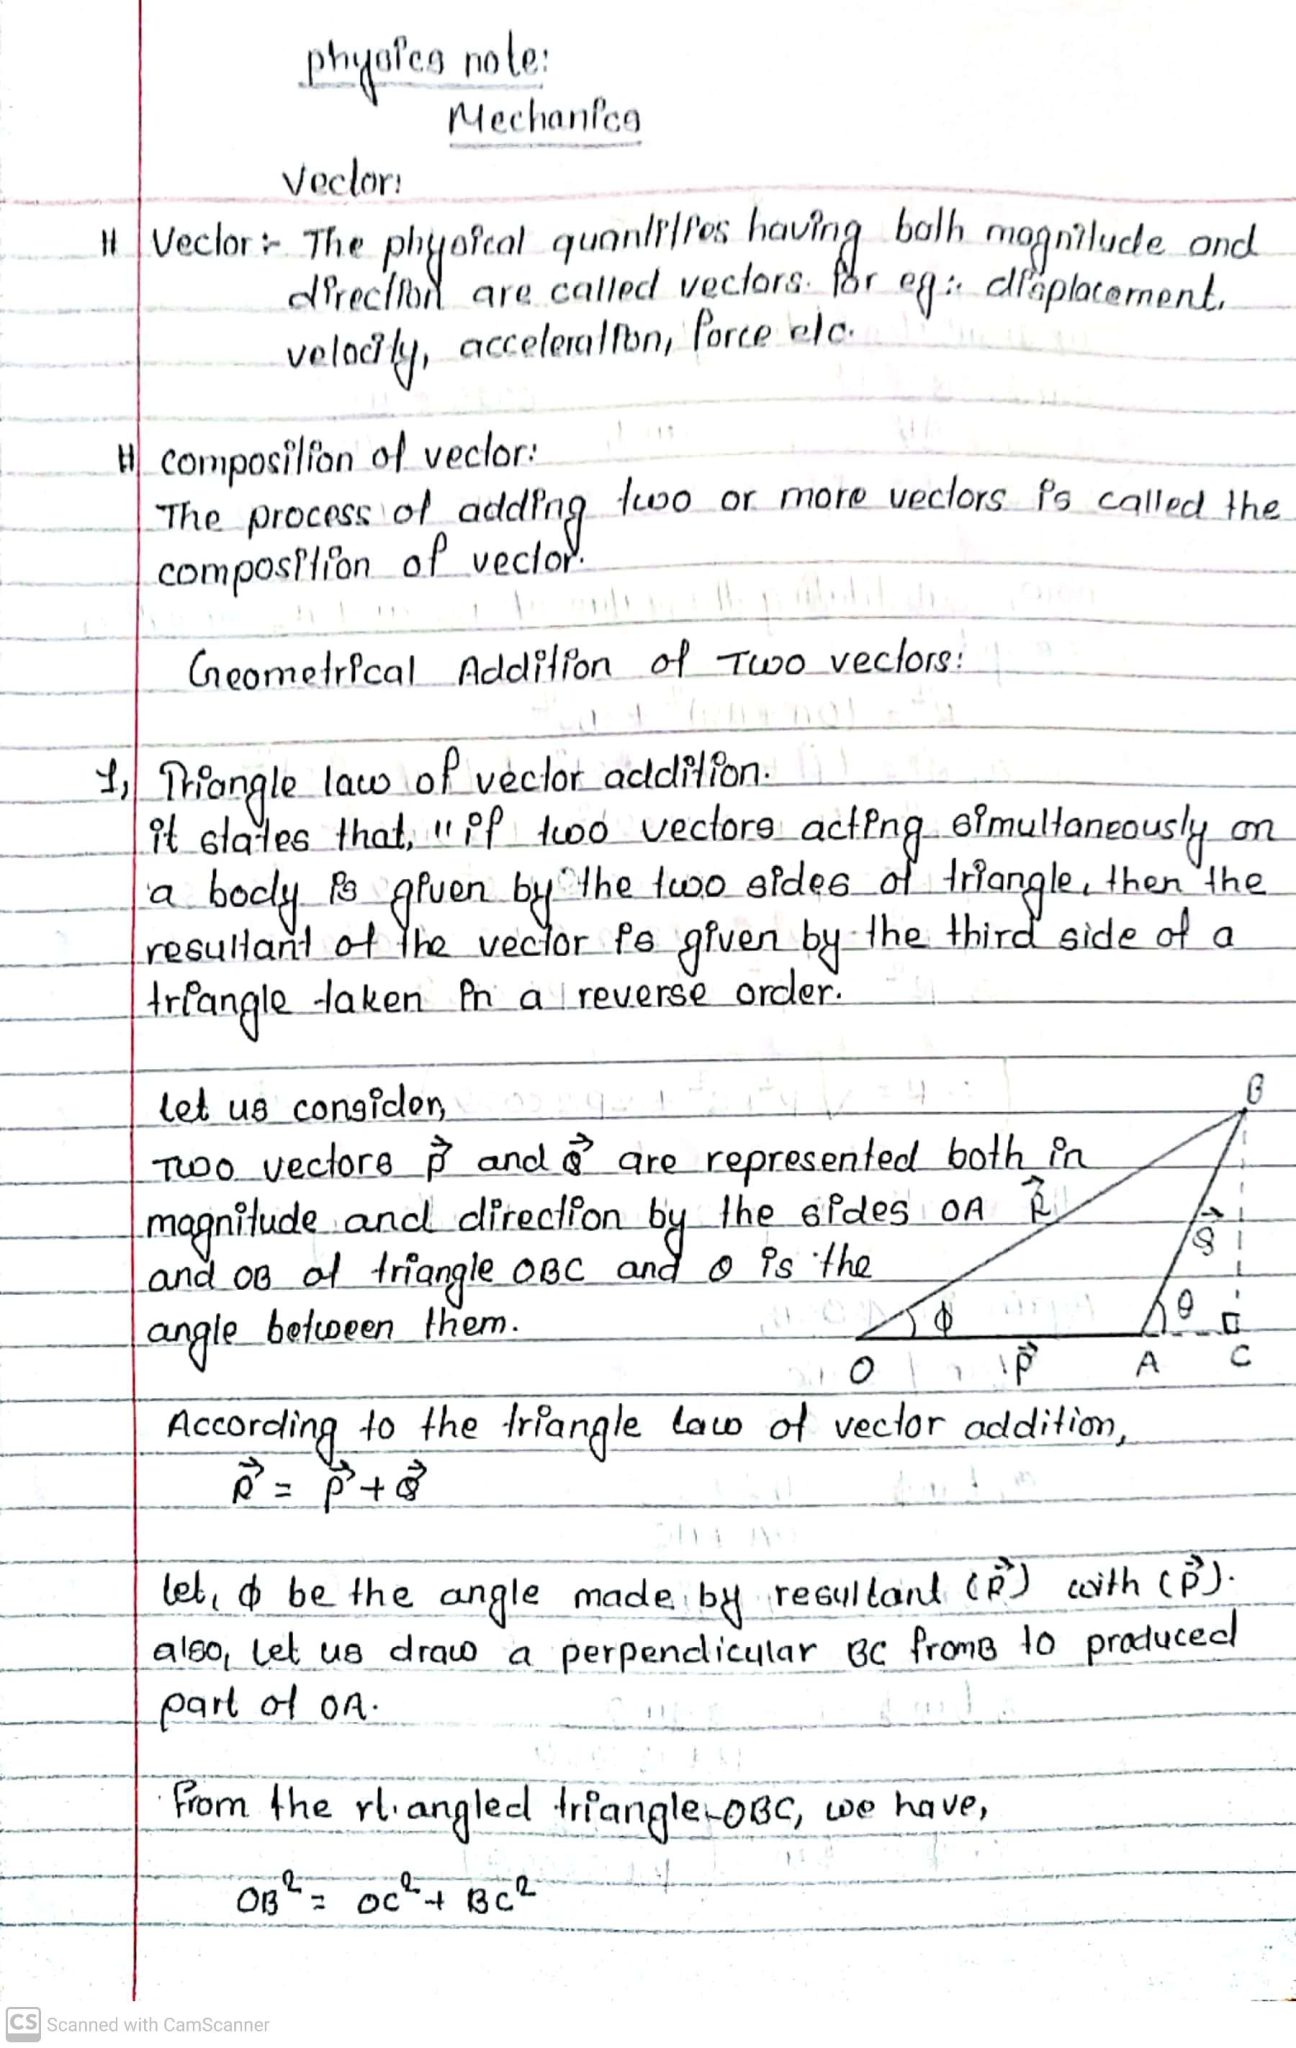 physics note:
Mechanics
Vector:
# Vector:- The physical quantities having both magnitude and
direction are called vectors. for eg:- displacement,
velocity, acceleration, force etc.
# composition of vector:
The process of adding two or more vectors is called the
composition of vector.
Geometrical Addition of Two vectors:
1, Triangle law of vector addition.
it states that, "if two vectors acting simultaneously on
a body is given by the two sides of triangle, then the
resultant of the vector is given by the third side of a
triangle taken in a reverse order.
let us consider,
Two vectors P⃗ and Q⃗ are represented both in
magnitude and direction by the sides OA
and OB of triangle OBC and θ is the
angle between them.
B
R⃗
Q⃗
ϕ
θ
O
P⃗
A
C
According to the triangle law of vector addition,
R⃗ = P⃗ + Q⃗
let, ϕ be the angle made by resultant (R⃗) with (P⃗).
also, let us draw a perpendicular BC from B to produced
part of OA.
from the rt. angled triangle OBC, we have,
OB² = OC² + BC²
CS Scanned with CamScanner